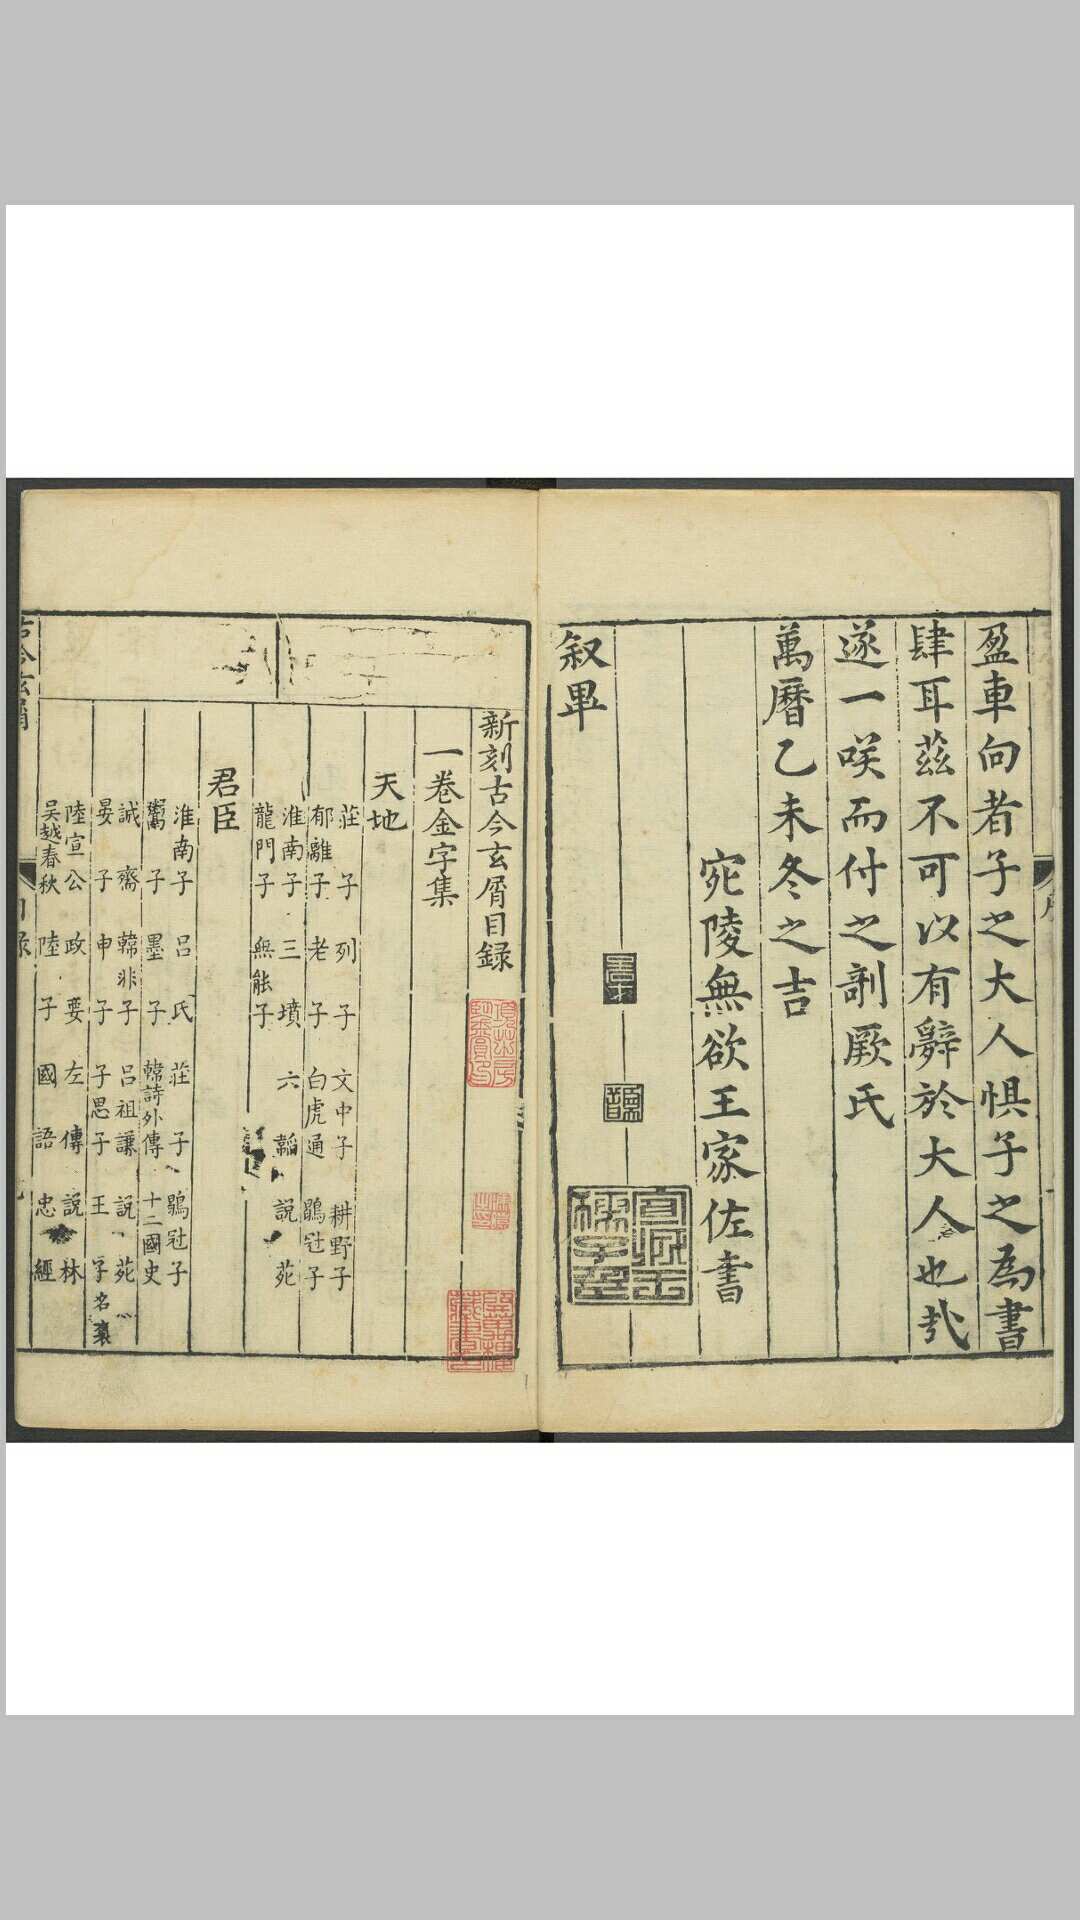 盈車向者子之大人惧子之為書
肆耳茲不可以有辭於大人也哉
遂一咲而付之剞厥氏
萬曆乙未冬之吉
宛陵無欲王家佐書
叙畢
新刻古今玄屑目録
一卷金字集
天地
莊子 列子 文中子 耕野子
郁離子 老子 白虎通 鶡冠子
淮南子 三墳 六韜 說苑
龍門子 無能子
君臣
淮南子 吕氏 莊子 鶡冠子
鬻子 墨子 韓詩外傳 十二國史
誠齋 韓非子 吕祖謙 說苑
晏子 申子 子思子 王子名襃
陸宣公政要 左傳 說林
吴越春秋 陸子 國語 忠經